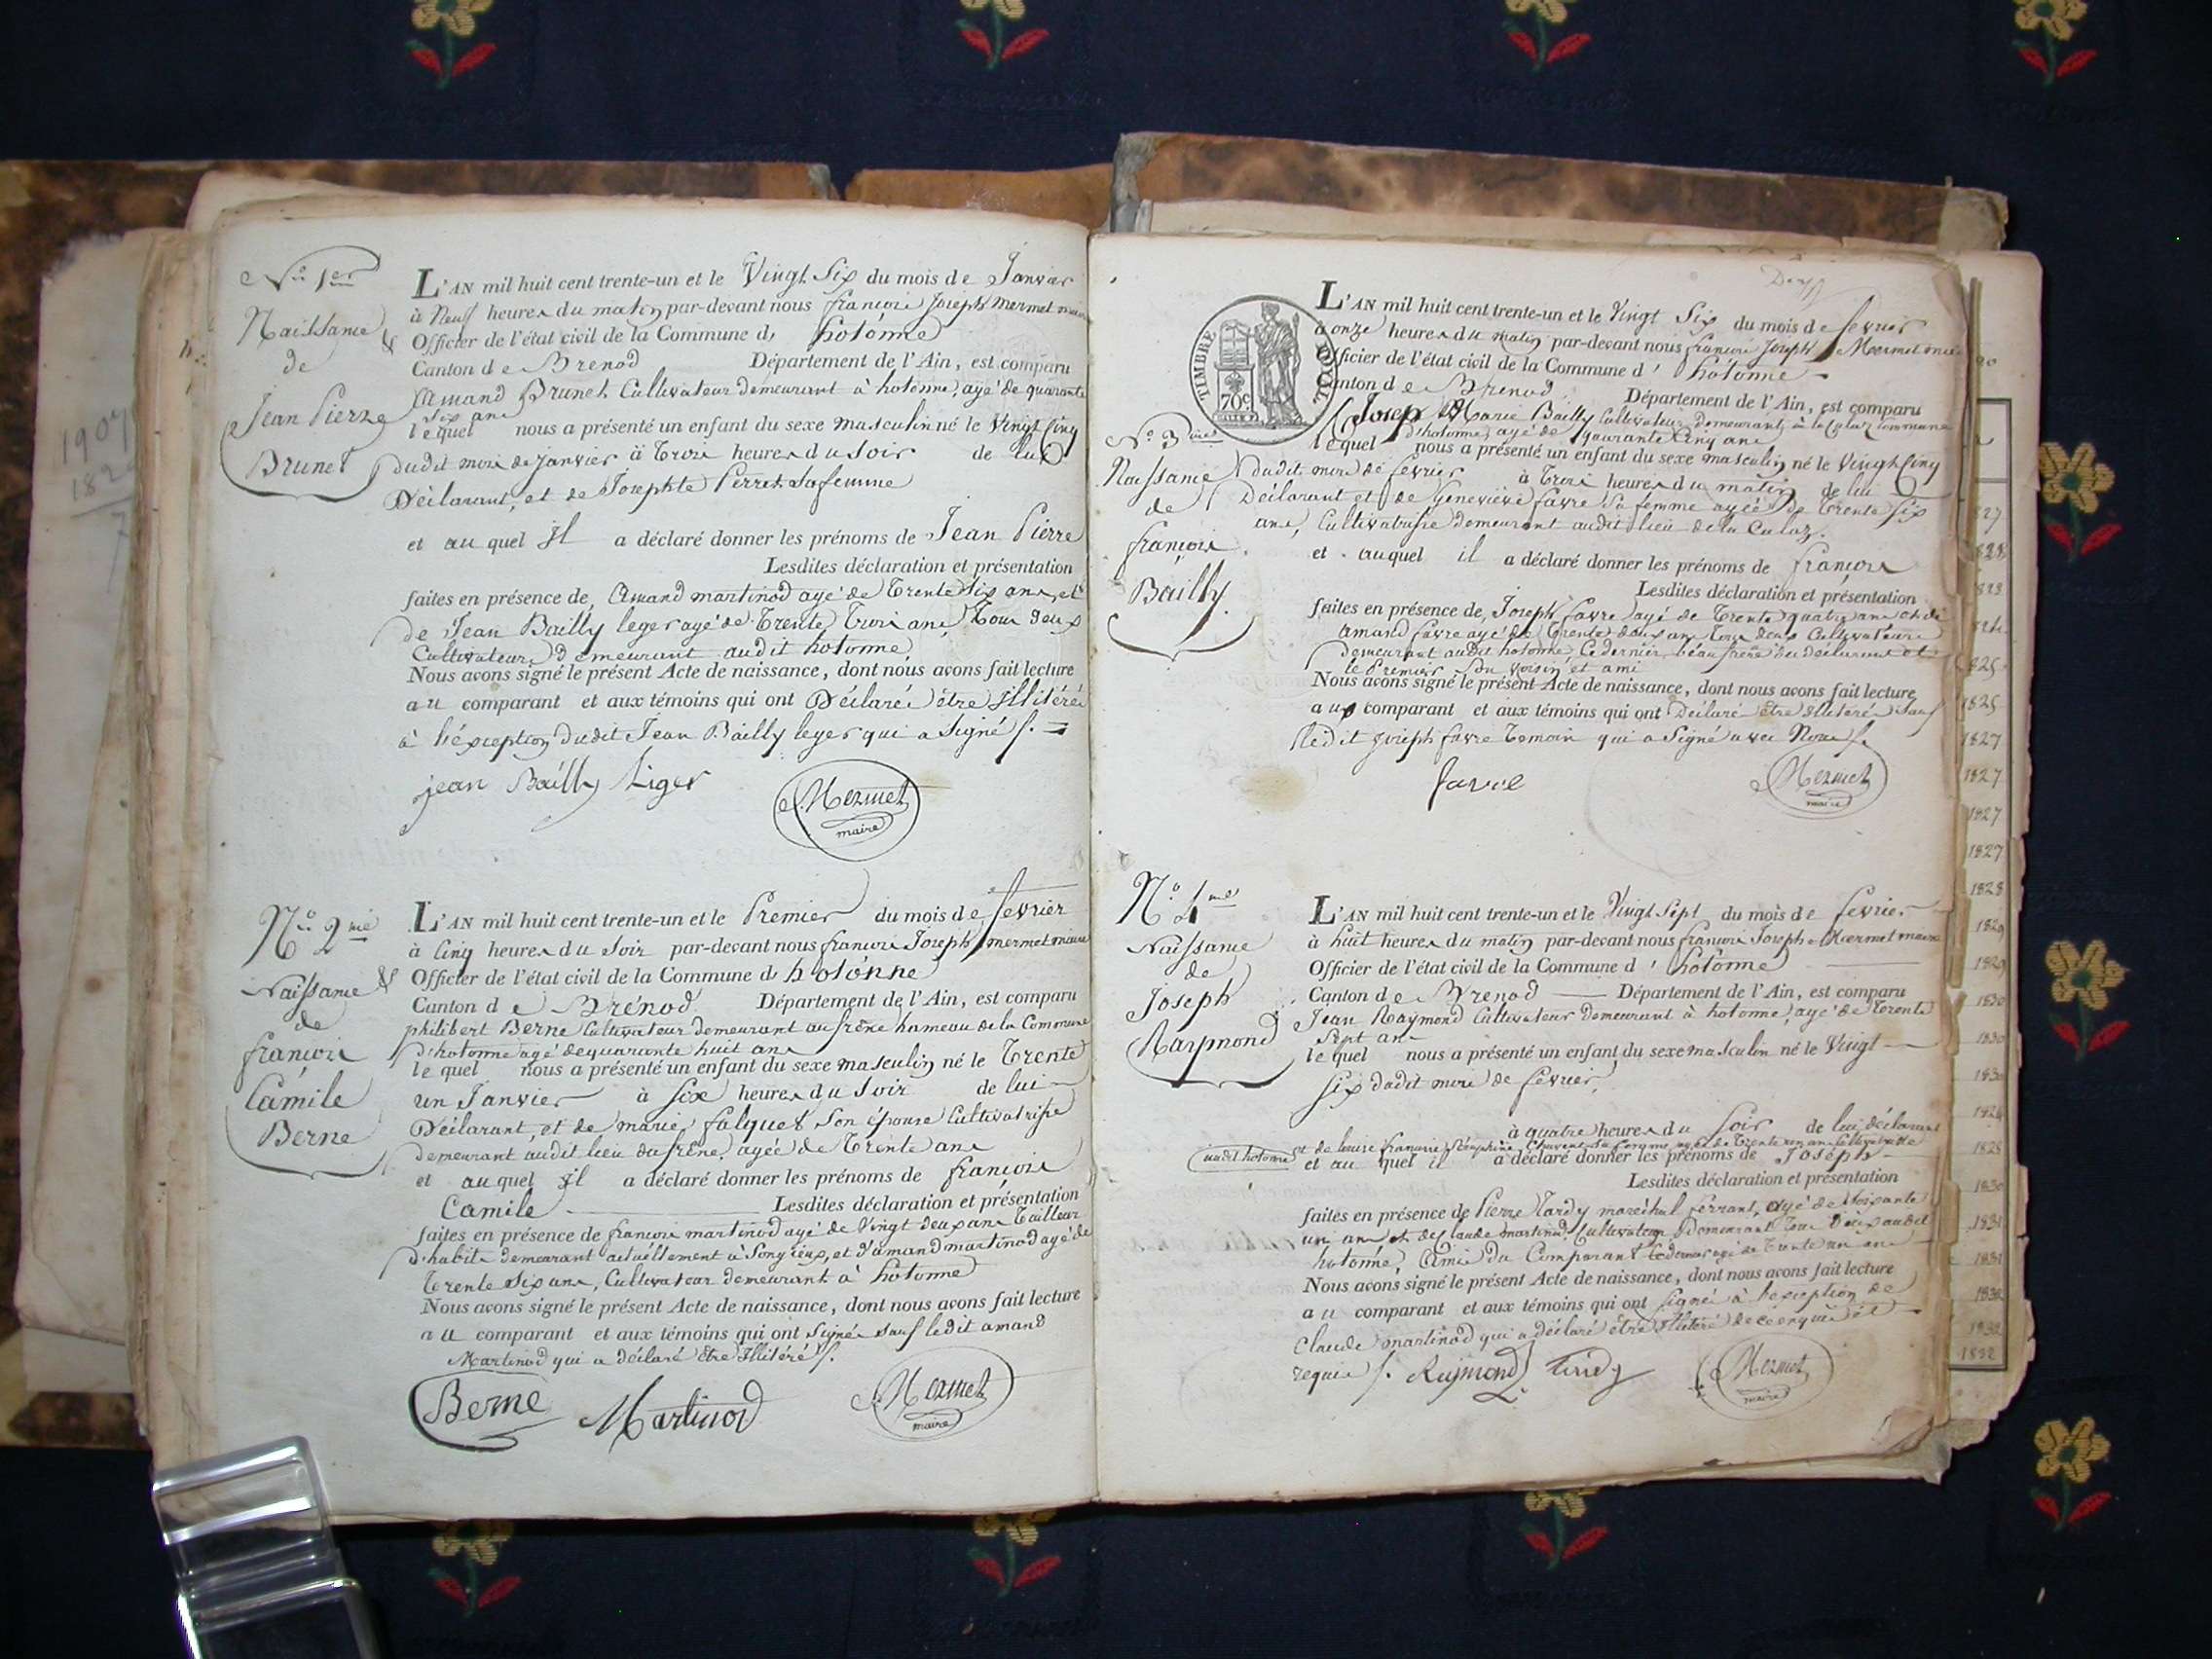 N.o 1er
Naissance
de
Jean Pierre
Brunet
L'AN mil huit cent trente-un et le Vingt Six du mois de Janvier
à Neuf heures du matin par-devant nous françois Joseph Mermet maire
Officier de l'état civil de la Commune d' hotonne
Canton de Brenod Département de l'Ain, est comparu
Amand Brunet Cultivateur demeurant à hotonne, agé de quarante
Six ans
lequel nous a présenté un enfant du sexe masculin né le Vingt Cinq
dudit mois de Janvier à trois heures du Soir de lui
Déclarant, et de Josephte Perret Sa femme
et au quel Il a déclaré donner les prénoms de Jean Pierre
Lesdites déclaration et présentation
faites en présence de Amand martinod agé de trente Six ans, et
de Jean Bailly leger agé de trente trois ans, tous deux
Cultivateurs demeurant audit hotonne
Nous avons signé le présent Acte de naissance, dont nous avons fait lecture
au comparant et aux témoins qui ont Déclarés être Illitérés
à l'éxception dudit Jean Bailly leger qui a Signé
jean Bailly Liger
Mermet
maire
N.o 2me
Naissance
de
françois
Camile
Berne
L'AN mil huit cent trente-un et le Premier du mois de fevrier
à Cinq heures du Soir par-devant nous françois Joseph mermet maire
Officier de l'état civil de la Commune d' hotonne
Canton de Brénod Département de l'Ain, est comparu
philibert Berne Cultivateur demeurant au frêne hameau de la Commune
d'hotonne agé de quarante huit ans
lequel nous a présenté un enfant du sexe masculin né le trente
un Janvier à Six heures du Soir de lui
Déclarant, et de marie falquet Son épouse Cultivatrise
demeurant audit lieu du frêne, agée de trente ans
et auquel Il a déclaré donner les prénoms de françois
Camile Lesdites déclaration et présentation
faites en présence de françois martinod agé de Vingt deux ans tailleur
d'habits demeurant actuéllement à Songieux, et d'amand martinod agé de
trente Six ans, Cultivateur demeurant à hotonne
Nous avons signé le présent Acte de naissance, dont nous avons fait lecture
au comparant et aux témoins qui ont Signés Sauf ledit amand
Martinod qui a déclaré être Illitéré
Berne Martinod
Mermet
maire
TIMBRE ROYAL
70c
N.o 3me
Naissance
de
françois
Bailly
L'AN mil huit cent trente-un et le Vingt Six du mois de fevrier
à onze heures du matin par-devant nous françois Joseph Mermet maire
Officier de l'état civil de la Commune d' hotonne
Canton de Brenod Département de l'Ain, est comparu
Joseph Marie Bailly Cultivateur demeurant à la Culaz Commune
d'hotonne, agé de quarante Cinq ans
lequel nous a présenté un enfant du sexe masculin né le Vingt Cinq
dudit mois de fevrier à trois heures du matin de lui
Déclarant et de Geneviève favre Sa femme agée de trente Six
ans, Cultivatrise demeurant audit lieu de la Culaz.
et auquel il a déclaré donner les prénoms de françois
Lesdites déclaration et présentation
faites en présence de Joseph favre agé de trente quatre ans et de
amand favre agé de trente deux ans tous deux Cultivateurs
demeurant audit hotonne, Ce dernier béau frère du déclarant et
le Premier Son voisin et ami
Nous avons signé le présent Acte de naissance, dont nous avons fait lecture
aux comparant et aux témoins qui ont Déclaré être Illitérés Sauf
ledit Joseph favre témoin qui a Signé avec Nous
favre
Mermet
maire
N.o 4me
Naissance
de
Joseph
Raymond
L'AN mil huit cent trente-un et le Vingt Sept du mois de fevrier
à huit heures du matin par-devant nous françois Joseph Mermet maire
Officier de l'état civil de la Commune d' hotonne
Canton de Brenod Département de l'Ain, est comparu
Jean Raymond Cultivateur demeurant à hotonne, agé de trente
Sept ans
lequel nous a présenté un enfant du sexe masculin né le Vingt
six dudit mois de fevrier,
à quatre heures du Soir de lui déclarant
audit hotonne et de louise françoise agée de trente un ans Cultivatrise
et au quel il a déclaré donner les prénoms de Joséph
Lesdites déclaration et présentation
faites en présence de Pierre tardy maréchal ferrant, agé de Soixante
un ans et de Claude martinod, Cultivateur Demeurant tous deux audit
hotonne, amis du Comparant Ce dernier agé de trente un ans
Nous avons signé le présent Acte de naissance, dont nous avons fait lecture
au comparant et aux témoins qui ont Signés à l'exception de
Claude martinod qui a déclaré être Illitéré de ce enquis et
requis Raymond tardy
Mermet
maire
1827
1827
1827
1827
1828
1829
1829
1830
1830